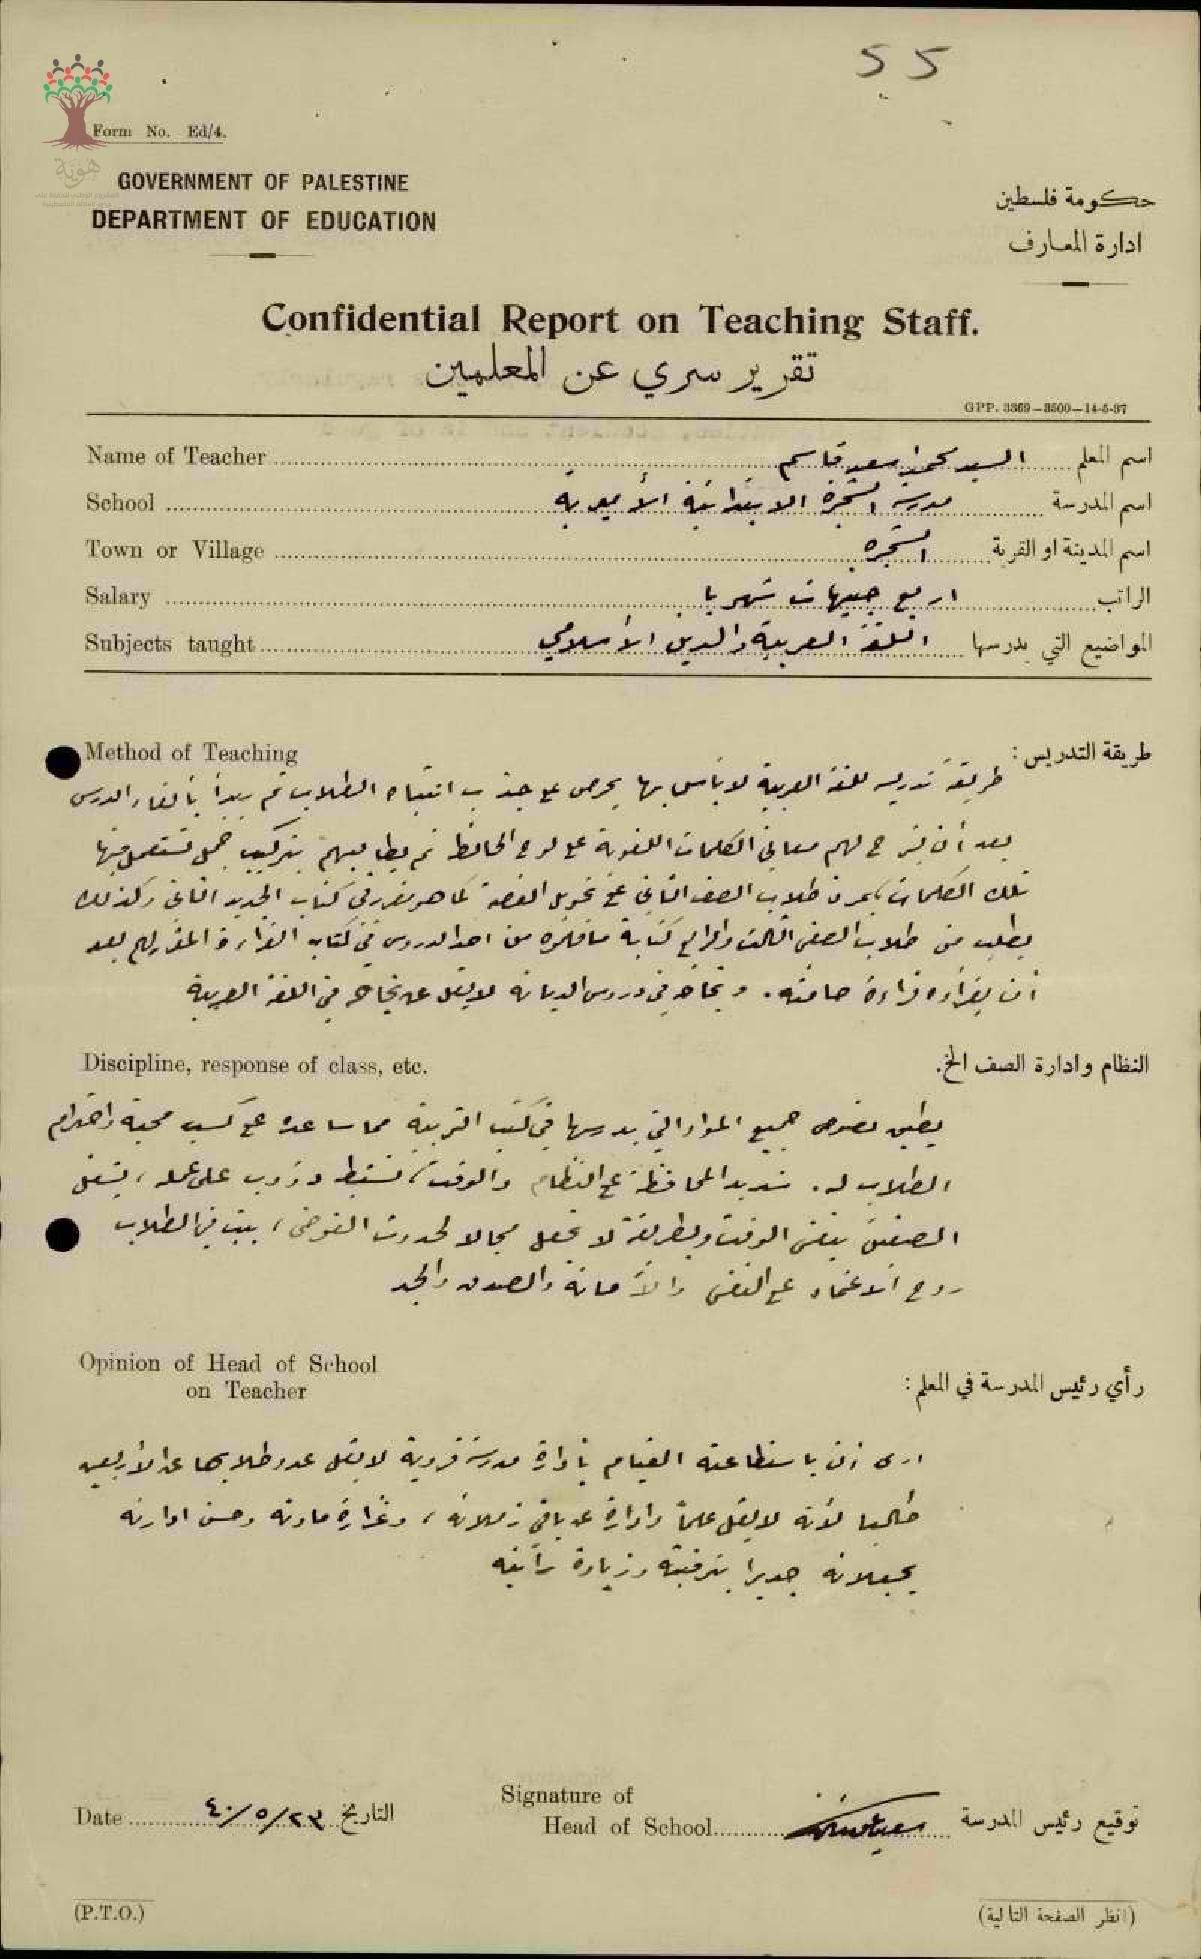 55
Form No. Ed/4.
هوية
GOVERNMENT OF PALESTINE
DEPARTMENT OF EDUCATION
حكومة فلسطين
ادارة المعارف
Confidential Report on Teaching Staff.
تقرير سري عن المعلمين
GPP. 3369—3500—14-5-37
Name of Teacher السيد محمد سعيد قاسم اسم المعلم
School مدرسة الشجرة الابتدائية الأميرية اسم المدرسة
Town or Village الشجره اسم المدينة او القرية
Salary اربع جنيهات شهريا الراتب
Subjects taught اللغة العربية والدين الأسلامي المواضيع التي يدرسها
Method of Teaching طريقة التدريس :
طريقة تدريسه للغة العربية لا بأس بها يحرص على جذب انتباه الطلاب ثم يبدأ بألقاء الدرس
بعد أن يشرح لهم معاني الكلمات اللغوية على لوح الحائط ثم يطالبهم بتركيب جمل تستعمل فيها
تلك الكلمات يمرن طلاب الصف الثاني على تحويل القصة كما هو مقرر في كتاب الجديد الثاني وكذلك
يطلب من طلاب الصفين الثالث والرابع كتابة ما فكره من احد الدروس في كتاب القراءة المقرر لهم بعد
أن يقرأوه قراءة صامته. ونجاحه في دروس الديانة لا يقل عن نجاحه في اللغة العربية
Discipline, response of class, etc. النظام وادارة الصف الخ.
يطبق نصوص جميع المواد التي يدرسها في كتب التربية مما ساعده على كسب محبة واحترام
الطلاب له. شديد المحافظة على النظام والوقت، نشيط ودؤوب على عمله، يشغل
الصفين بنفس الوقت وبطريقة لا تجعل مجالا لحدوث الفوضى، يبث في الطلاب
روح الاعتماد على النفس والأمانة والصدق والجد
Opinion of Head of School
on Teacher
رأي رئيس المدرسة في المعلم :
ارى أن باستطاعته القيام بأدارة مدرسة قروية لا يقل عدد طلابها عن الأربعين
طالبا لأنه لا يقل علماً وادارة عن باقي زملائه، وغزارة مادته وحسن ادارته
يجعلانه جديرا بترقيته وزيادة راتبه
Signature of
Head of School توقيع رئيس المدرسة
Date ٤٠/٥/٢٣ التاريخ
(P.T.O.)
(انظر الصفحة التالية)